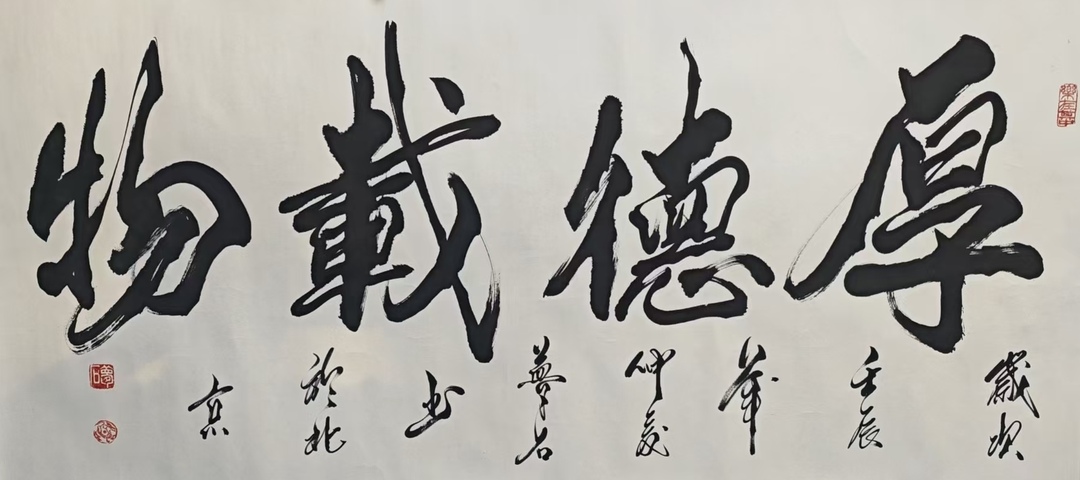 厚德載物
歲次
壬辰
年
仲夏
夢石
書
於北
京